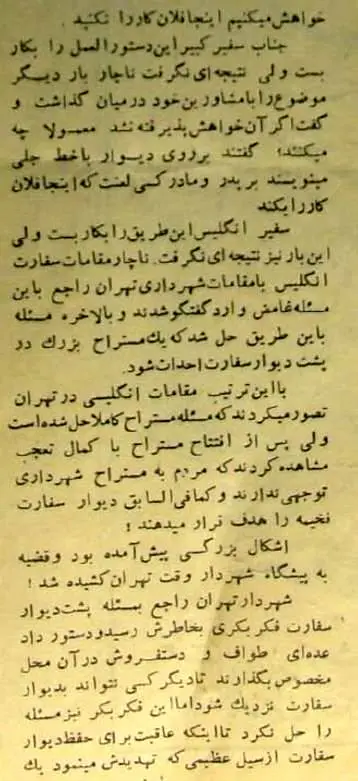 خواهش میکنیم اینجا فلان کار را نکنید .
جناب سفیر کبیر این دستور العمل را بکار
بست ولی نتیجه ای نگرفت ناچار بار دیگر
موضوع را با مشاورین خود در میان گذاشت و
گفت اگر آن خواهش پذیرفته نشد معمولا چه
میکنند؟ گفتند بر روی دیوار با خط جلی
مینویسند بر پدر و مادر کسی لعنت که اینجا فلان
کار را بکند
سفیر انگلیس این طریق را بکار بست ولی
این بار نیز نتیجه ای نگرفت. ناچار مقامات سفارت
انگلیس با مقامات شهرداری تهران راجع باین
مسئله غامض وارد گفتگو شدند و بالاخره مسئله
باین طریق حل شد که یک مستراح بزرگ در
پشت دیوار سفارت احداث شود.
با این ترتیب مقامات انگلیسی در تهران
تصور میکردند که مسئله مستراح کاملا حل شده است
ولی پس از افتتاح مستراح با کمال تعجب
مشاهده کردند که مردم به مستراح شهرداری
توجهی ندارند و کمافی السابق دیوار سفارت
فخیمه را هدف قرار میدهند !
اشکال بزرگی پیش آمده بود و قضیه
به پیشگاه شهردار وقت تهران کشیده شد !
شهردار تهران راجع بمسئله پشت دیوار
سفارت فکر بکری بخاطرش رسید و دستور داد
عده ای طواف و دستفروش در آن محل
مخصوص بگذارند تا دیگر کسی نتواند بدیوار
سفارت نزدیک شود اما این فکر بکر نیز مسئله
را حل نکرد تا اینکه عاقبت برای حفظ دیوار
سفارت از سیل عظیمی که تهدیدش مینمود یک